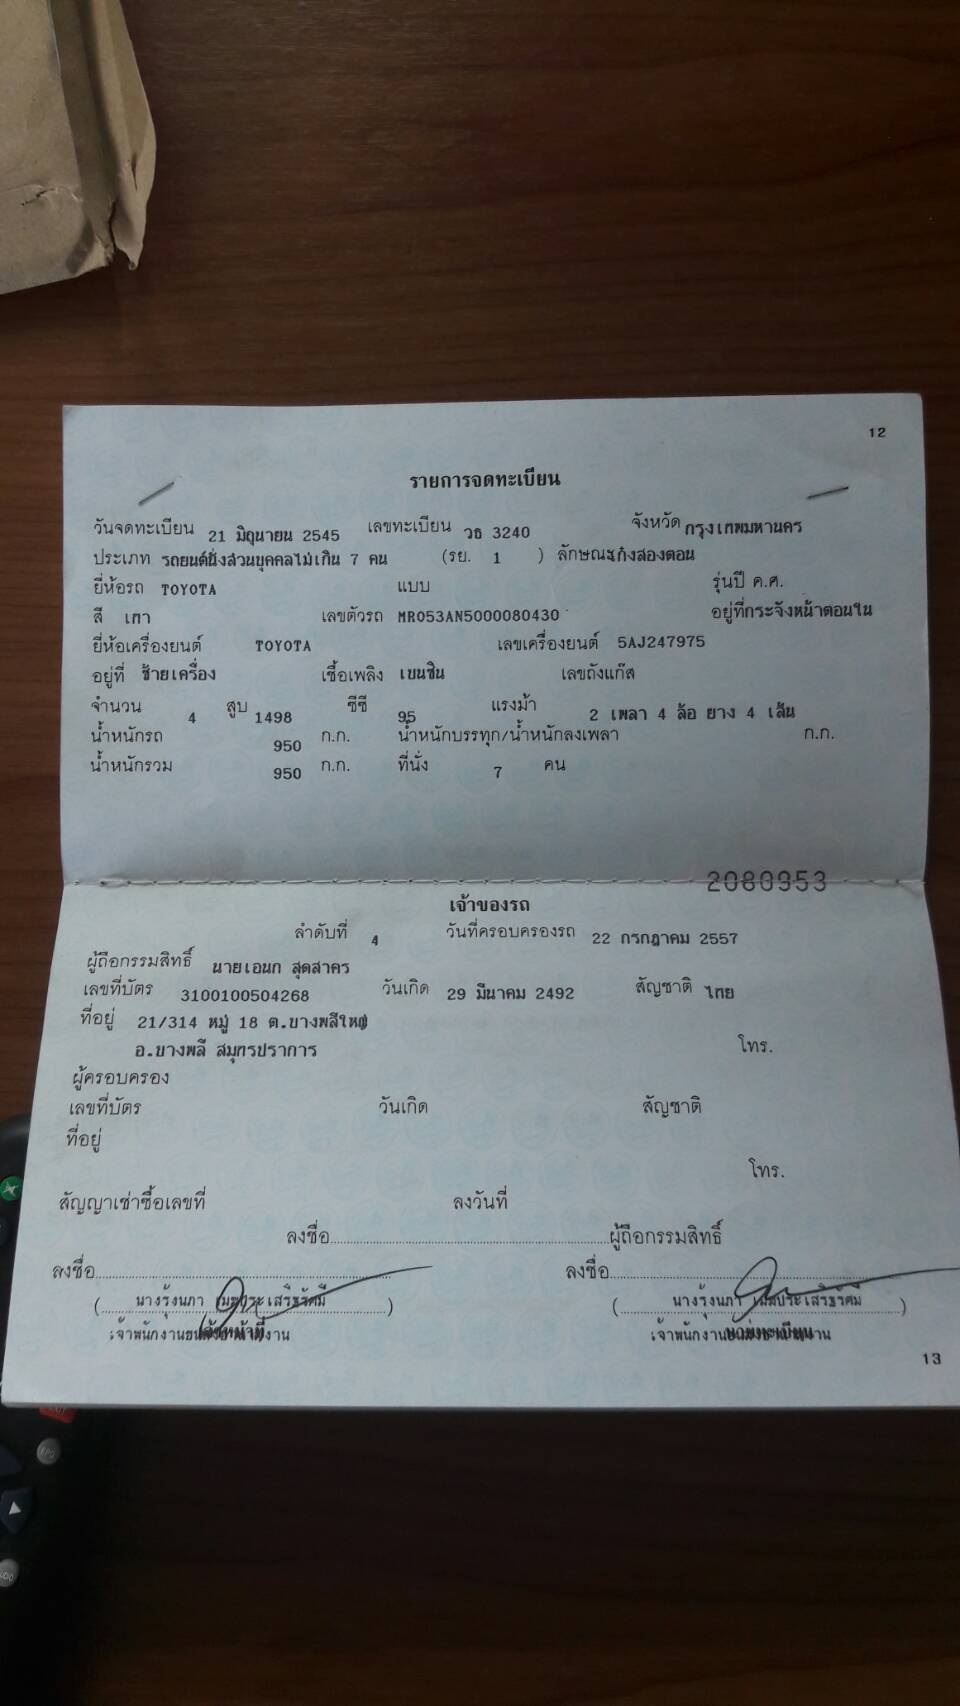 12
รายการจดทะเบียน
วันจดทะเบียน 21 มิถุนายน 2545 เลขทะเบียน วธ 3240 จังหวัด กรุงเทพมหานคร
ประเภท รถยนต์นั่งส่วนบุคคลไม่เกิน 7 คน (รย. 1 ) ลักษณะ เก๋งสองตอน
ยี่ห้อรถ TOYOTA แบบ รุ่นปี ค.ศ.
สี เทา เลขตัวรถ MR053AN5000080430 อยู่ที่ กระจังหน้าตอนใน
ยี่ห้อเครื่องยนต์ TOYOTA เลขเครื่องยนต์ 5AJ247975
อยู่ที่ ซ้ายเครื่อง เชื้อเพลิง เบนซิน เลขถังแก๊ส
จำนวน 4 สูบ 1498 ซีซี 95 แรงม้า 2 เพลา 4 ล้อ ยาง 4 เส้น
น้ำหนักรถ 950 ก.ก. น้ำหนักบรรทุก/น้ำหนักลงเพลา ก.ก.
น้ำหนักรวม 950 ก.ก. ที่นั่ง 7 คน
2080953
เจ้าของรถ
ลำดับที่ 4 วันที่ครอบครองรถ 22 กรกฎาคม 2557
ผู้ถือกรรมสิทธิ์ นายเอนก สุดสาคร
เลขที่บัตร 3100100504268 วันเกิด 29 มีนาคม 2492 สัญชาติ ไทย
ที่อยู่ 21/314 หมู่ 18 ต.บางพลีใหญ่
อ.บางพลี สมุทรปราการ โทร.
ผู้ครอบครอง
เลขที่บัตร วันเกิด สัญชาติ
ที่อยู่
โทร.
สัญญาเช่าซื้อเลขที่ ลงวันที่
ลงชื่อ ผู้ถือกรรมสิทธิ์
ลงชื่อ ลงชื่อ
( นางรุ่งนภา ) ( นางรุ่งนภา )
13